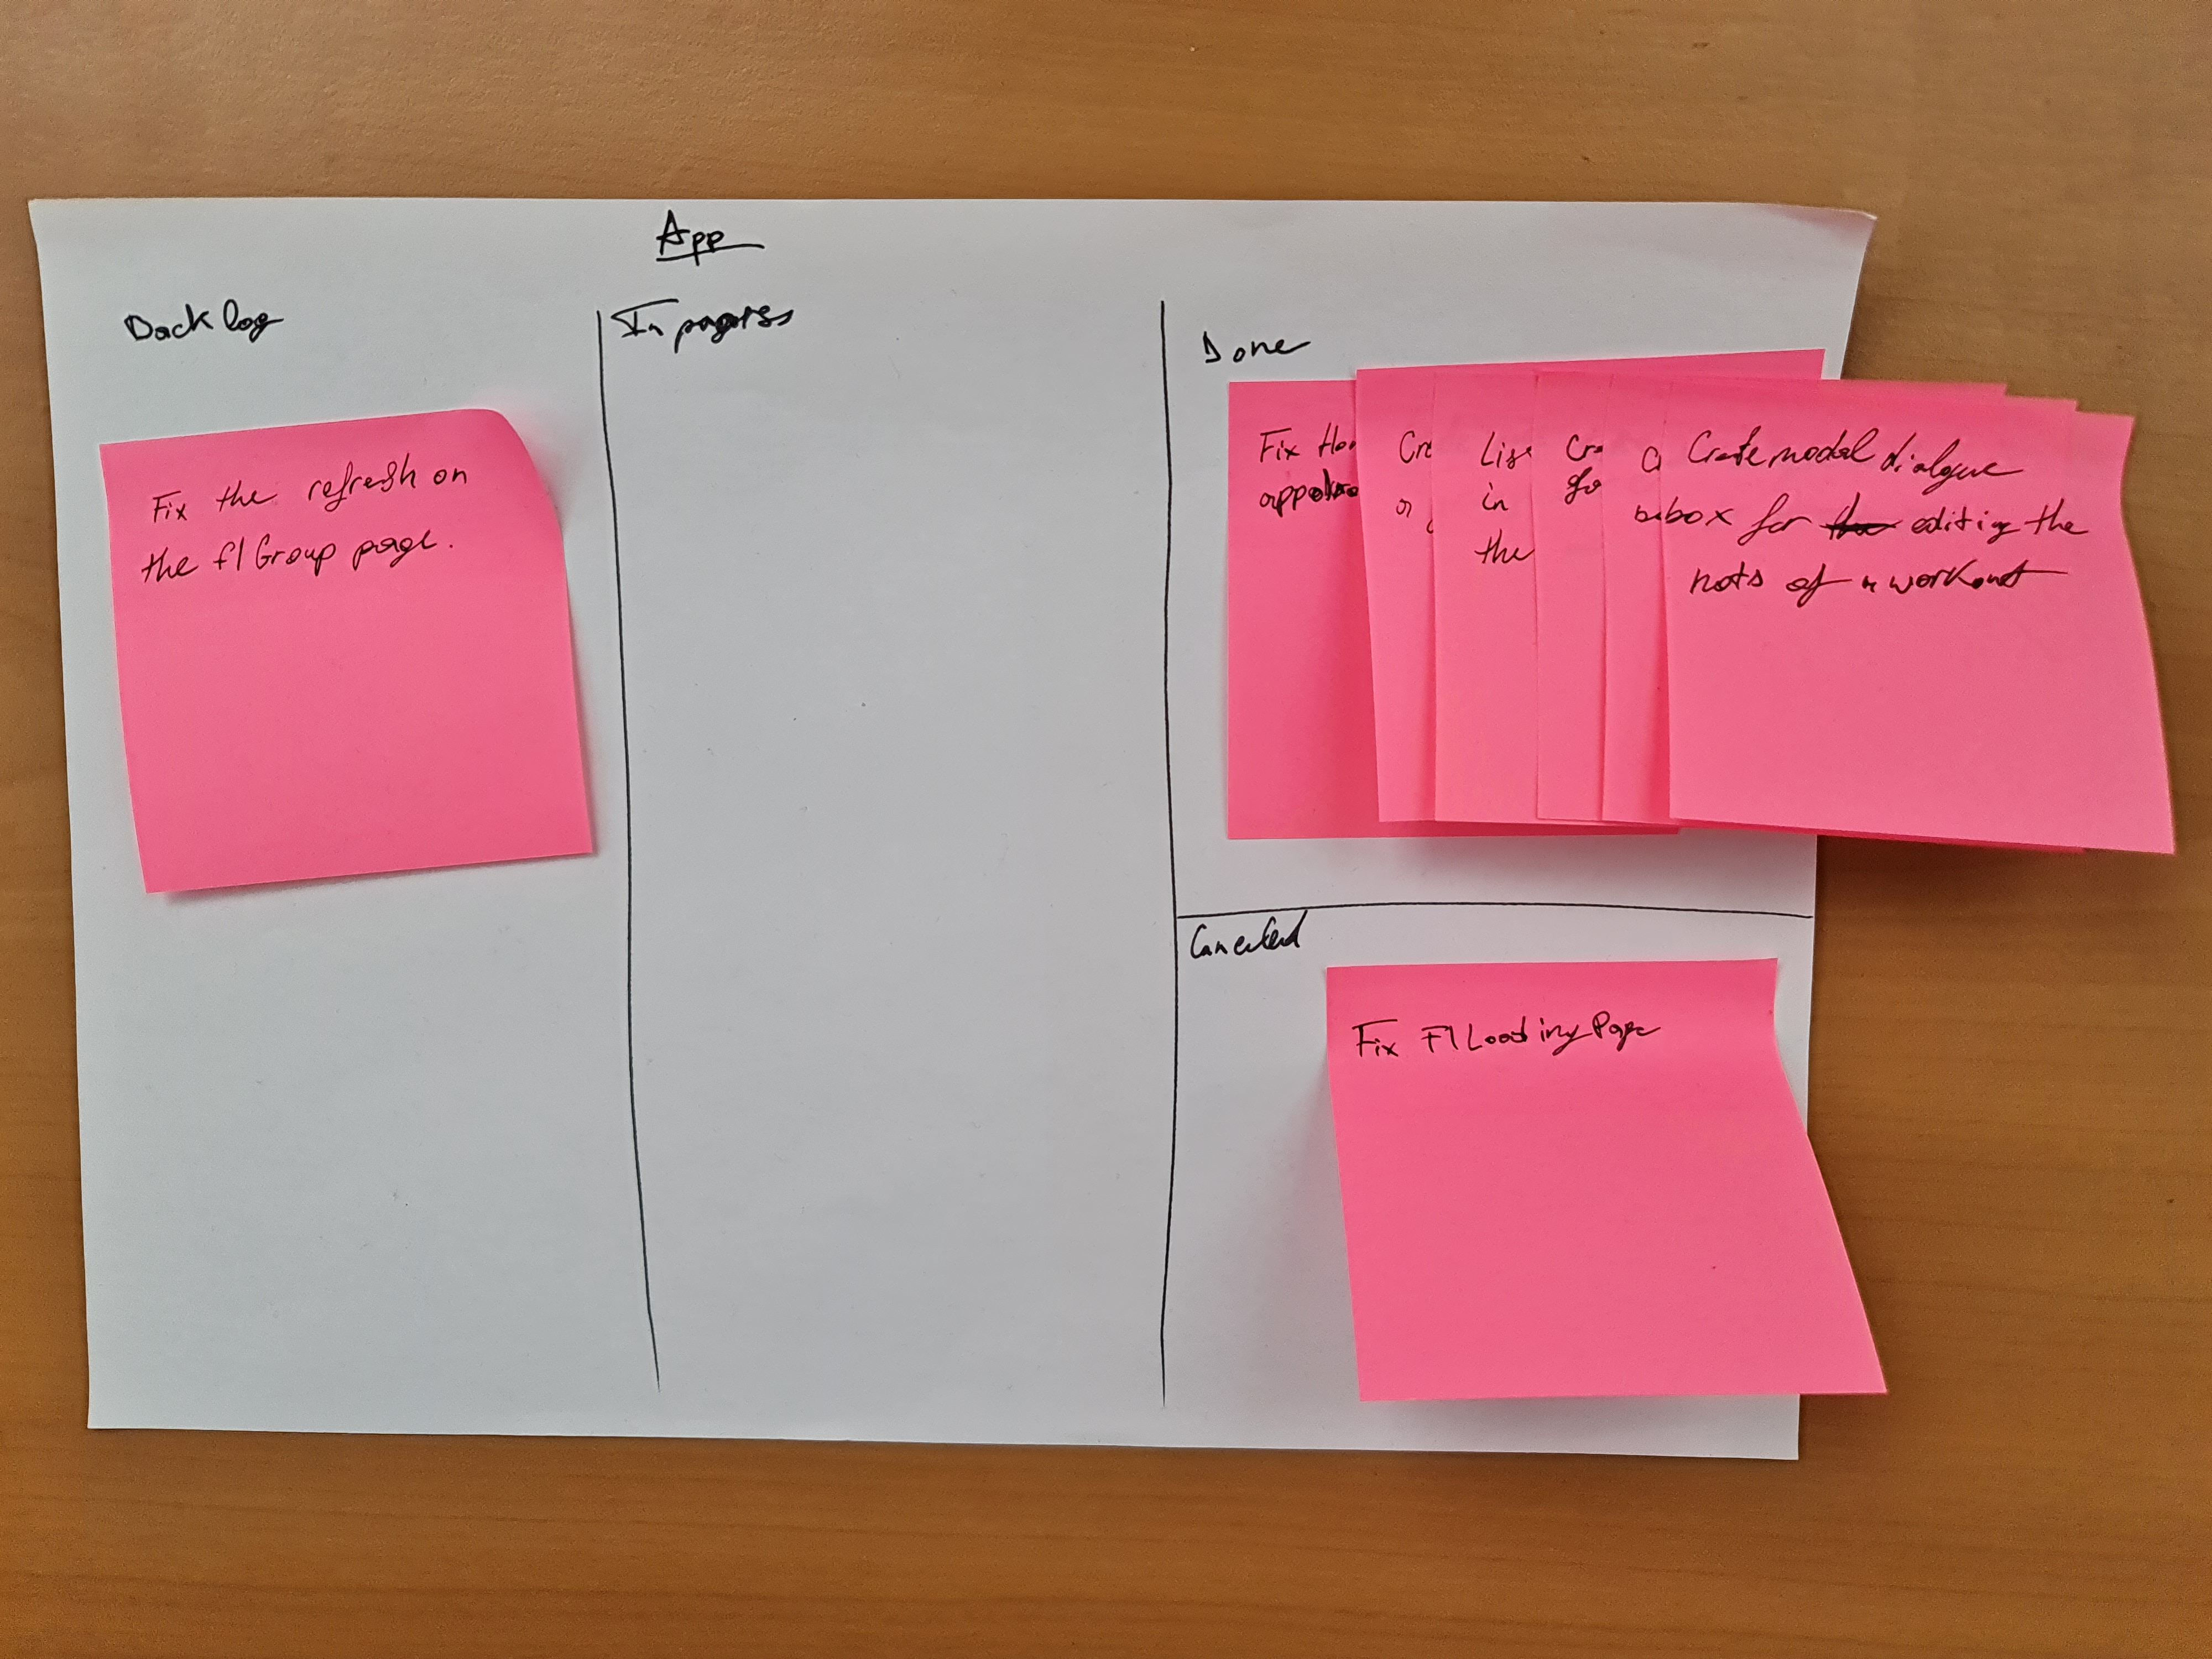 App
Backlog
In progress
Done
Fix the refresh on
the f1 Group page.
Fix
in
the
Create modal dialogue
box for editing the
nots of a workout
Canceled
Fix F1LoadingPage